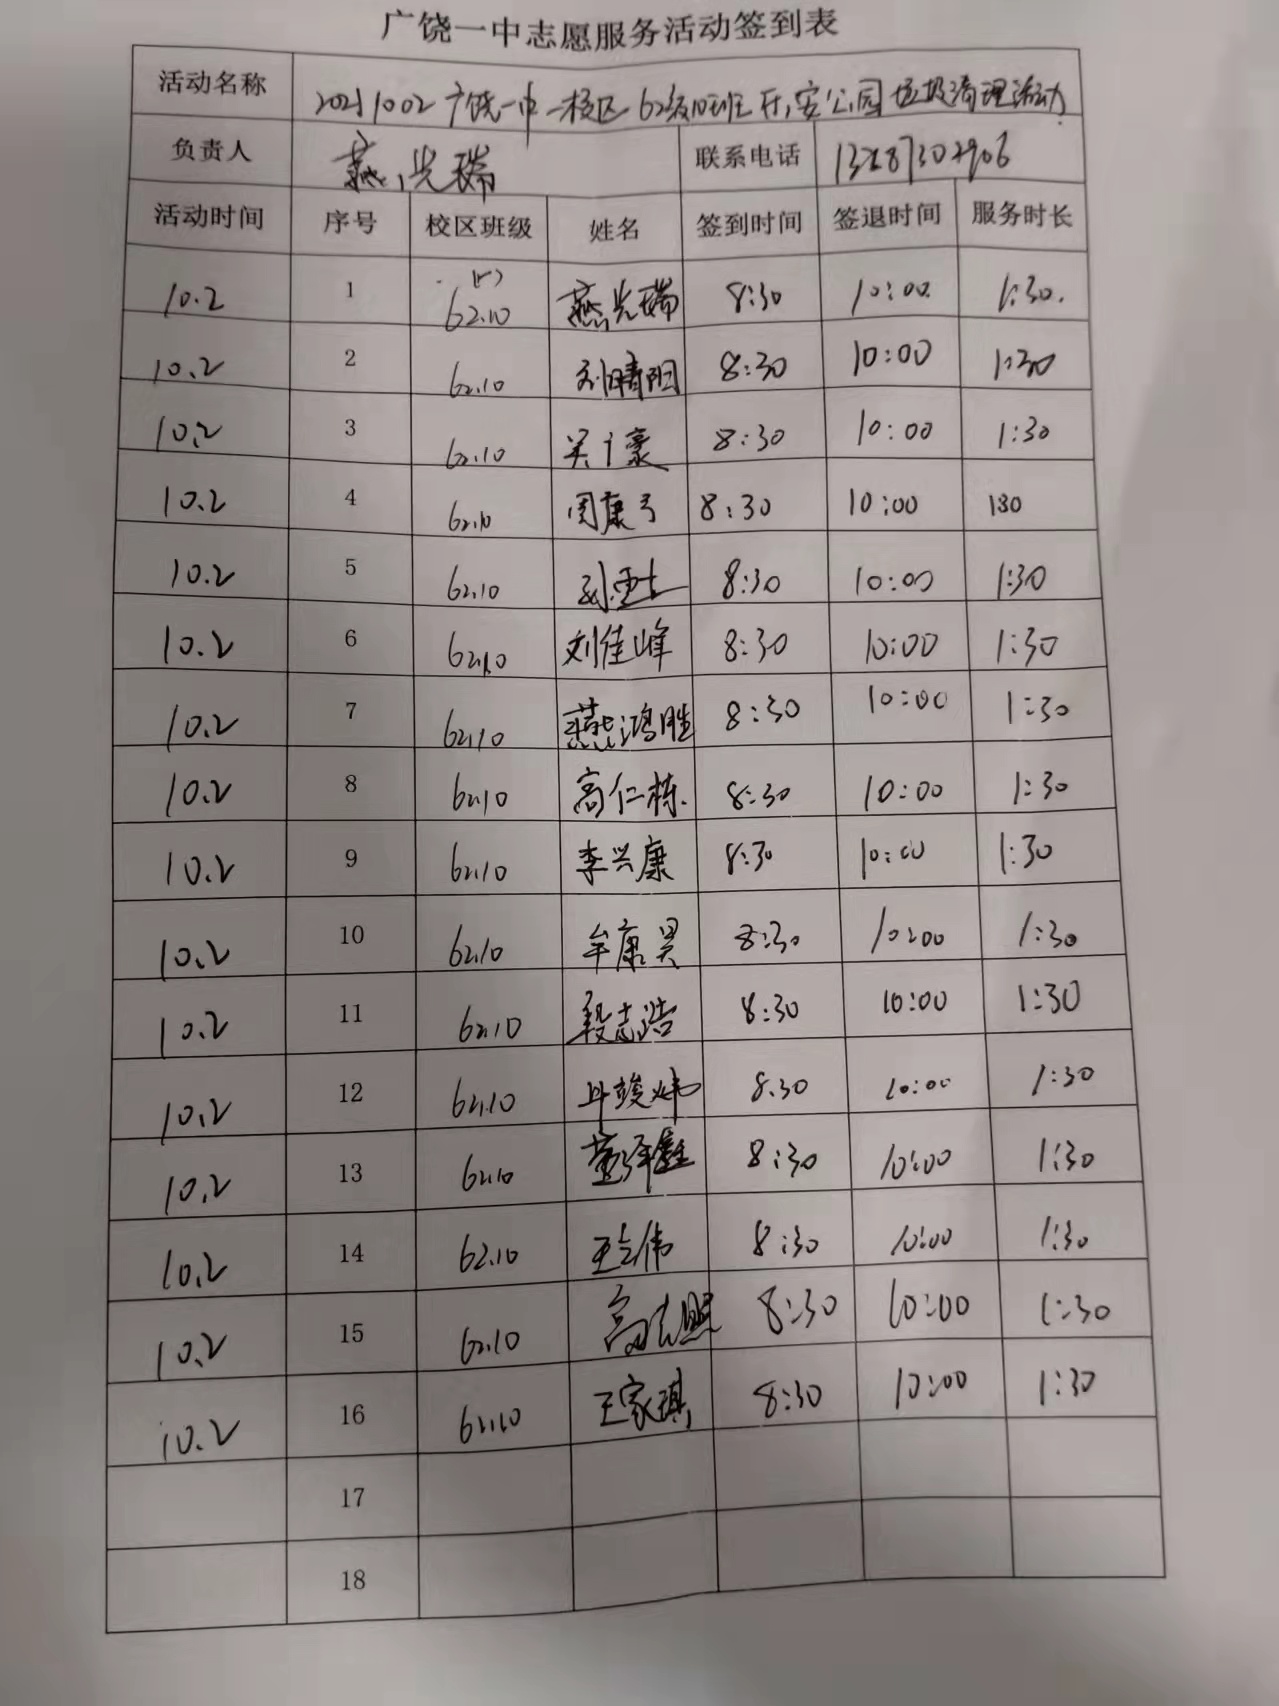 广饶一中志愿服务活动签到表
活动名称 20211002广饶一中一校区62级10班乐安公园垃圾清理活动
负责人 燕光瑞 联系电话
活动时间 序号 校区班级 姓名 签到时间 签退时间 服务时长
10.2 1 62.10 燕光瑞 8:30 10:00. 1:30.
10.2 2 62.10 刘晴阳 8:30 10:00 1:30
10.2 3 62.10 吴广豪 8:30 10:00 1:30
10.2 4 62.10 周康弓 8:30 10:00 130
10.2 5 62.10 8:30 10:00 1:30
10.2 6 62.10 刘佳峰 8:30 10:00 1:30
10.2 7 62.10 燕鸿胜 8:30 10:00 1:30
10.2 8 62.10 高仁栋. 8:30 10:00 1:30
10.2 9 62.10 李兴康 8:30 10:00 1:30
10.2 10 62.10 牟康昊 8:30 10:00 1:30
10.2 11 62.10 段志浩 8:30 10:00 1:30
10.2 12 62.10 8.30 10:00 1:30
10.2 13 62.10 8:30 10:00 1:30
10.2 14 62.10 王立伟 8:30 10:00 1:30
10.2 15 62.10 8:30 10:00 1:30
10.2 16 62.10 王家琪 8:30 10:00 1:30
17
18